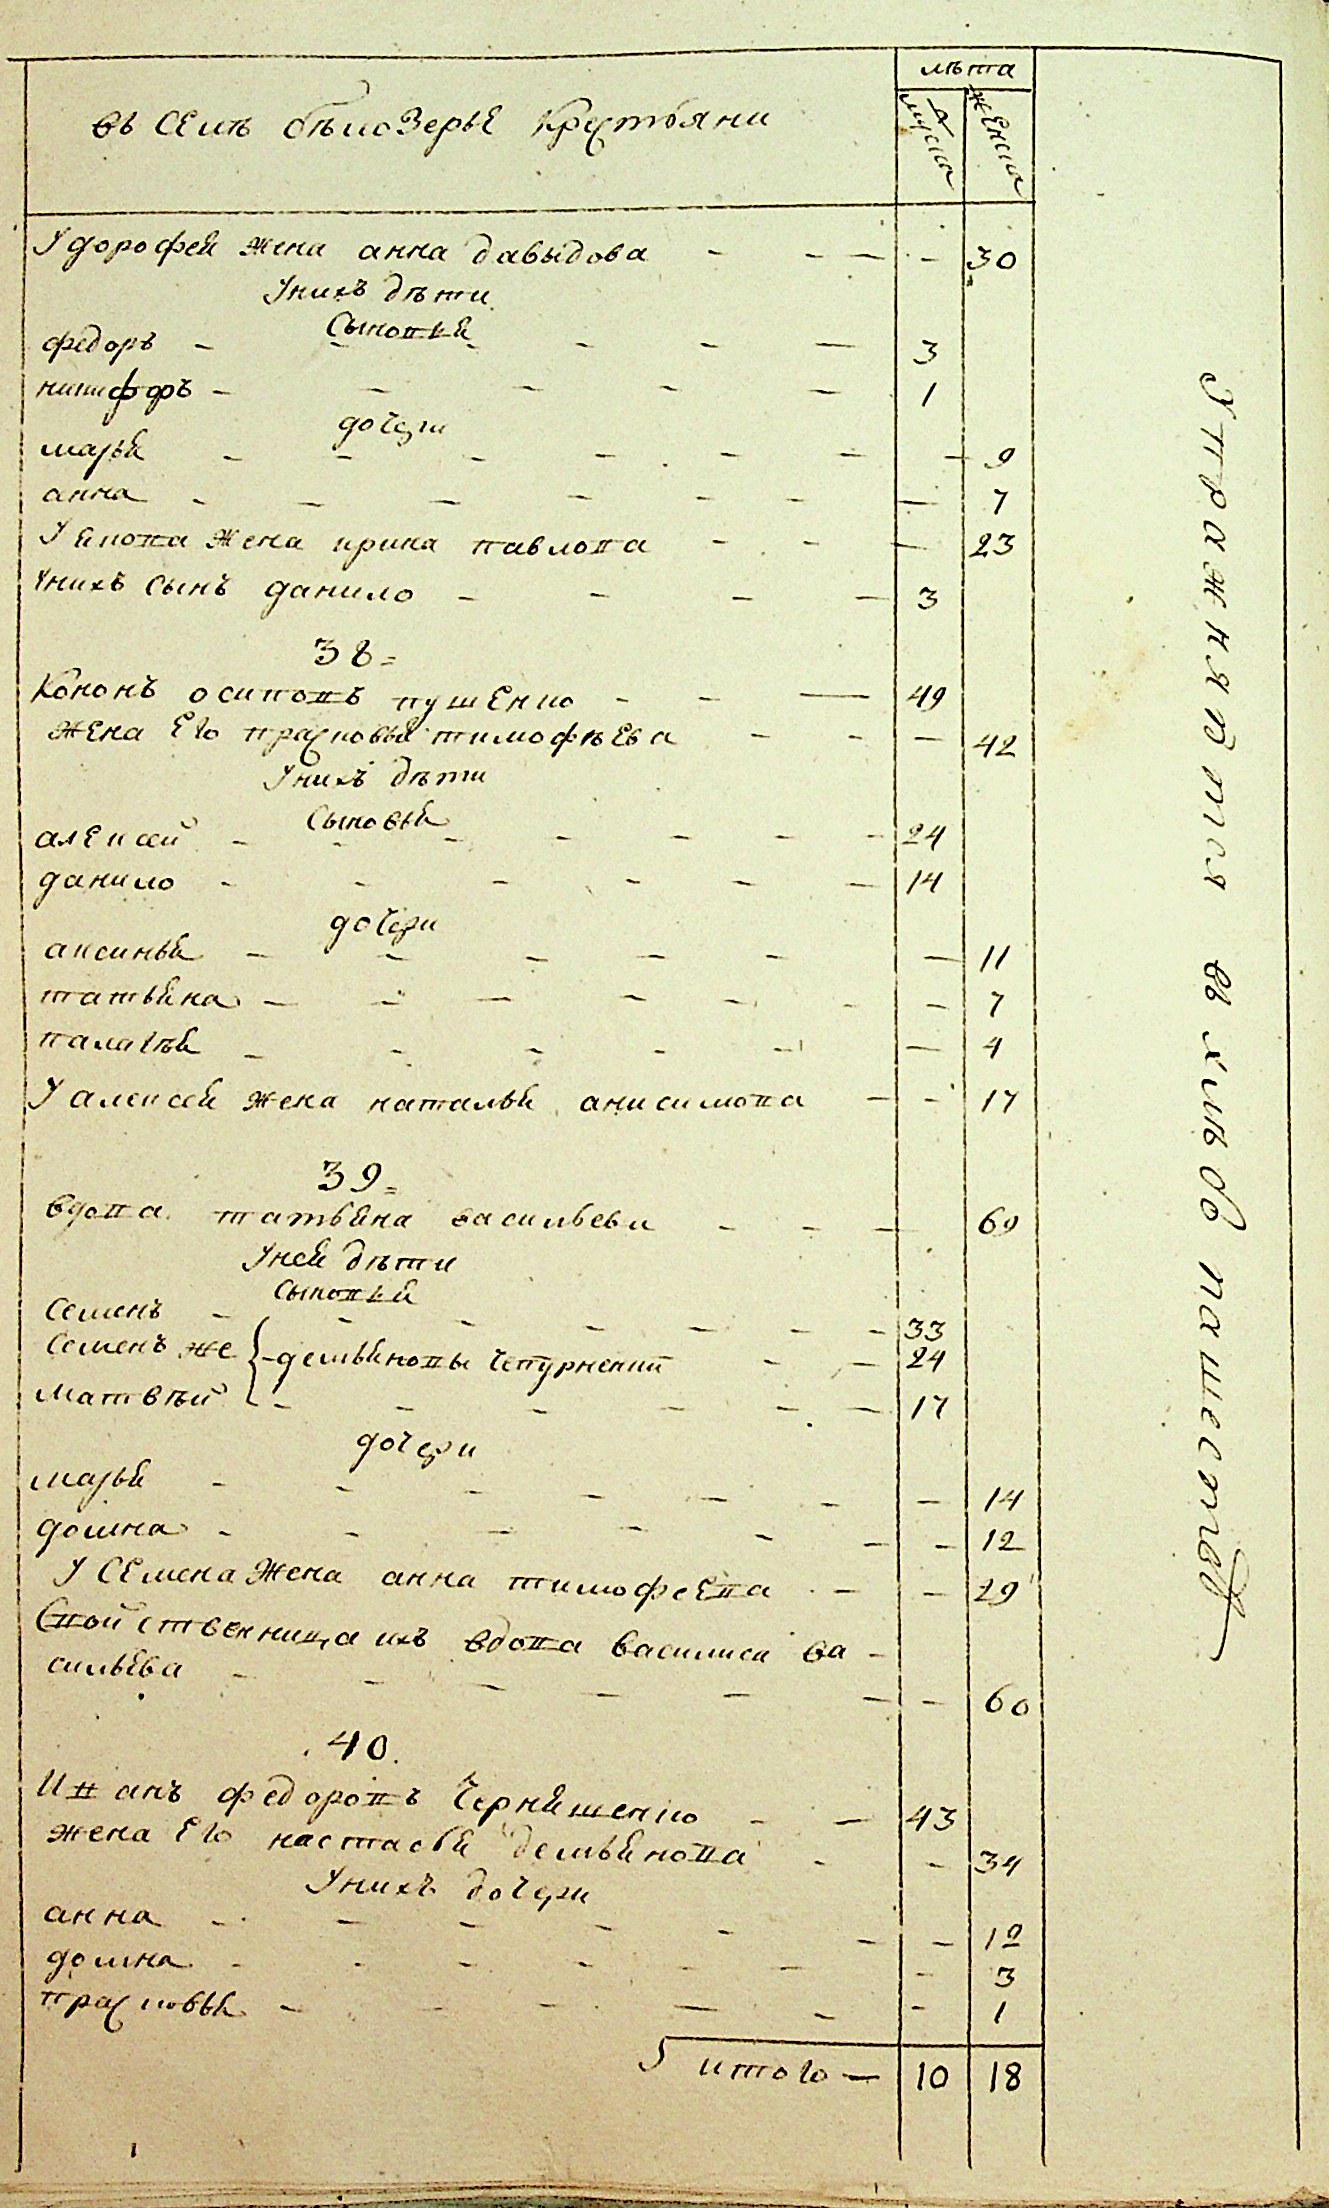 лѣта
муска
женска
въ селѣ бѣлозерье крестьяни
У дорофея жена анна давыдова - - - - 30
У нихъ дѣти
Сыновья
федоръ - - - - - - 3
никифоръ - - - - - 1
дочери
марья - - - - - - - 9
анна - - - - - - - - 7
У якова жена ирина павлова - - - 23
У нихъ сынъ данило - - - - 3
38=
кононъ осиповъ пушенко - - - 49
жена его прасковья тимофѣева - - - 42
У нихъ дѣти
Сыновья
алексей - - - - - - - 24
данило - - - - - - 14
дочери
аксинья - - - - - - 11
татьяна - - - - - - - 7
палагѣя - - - - - - 4
У алексея жена наталья анисимова - - 17
39=
вдова татьяна васильева - - - 60
У ней дѣти
Сыновья
Семенъ - - - - - - - 33
Семенъ же - демьяновы чепурненки - - 24
матвѣй - - - - - - 17
дочери
марья - - - - - - - 14
домна - - - - - - - 12
У Семена жена анна тимофеева - - - 29
Свойственница ихъ вдова василиса ва-
сильева - - - - - - - 60
40.
Иванъ федоровъ чернышенко - - 43
жена его настасья демьянова - - 34
У нихъ дочери
анна - - - - - - - 12
домна - - - - - - - 3
прасковья - - - - - - 1
итого - 10 18
Упражняются въ хлѣбопашествѣ